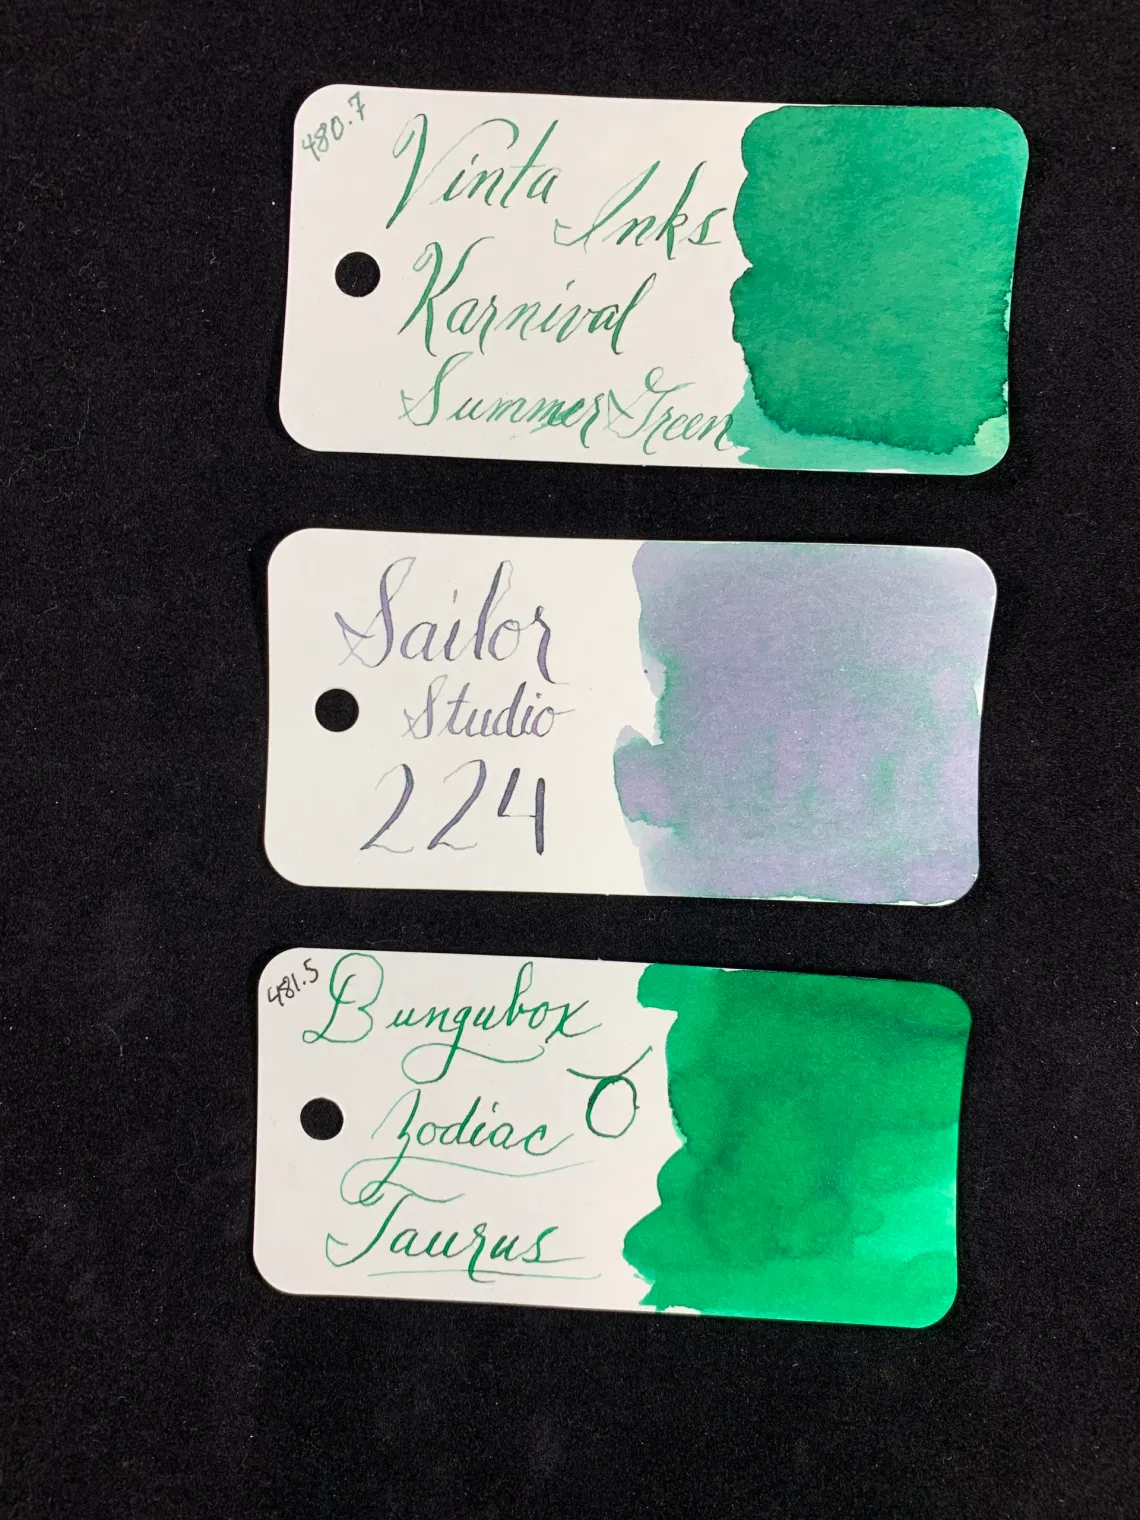 480.7
Vinta
Inks
Karnival
Summer Green
Sailor
Studio
224
481.5
Bungubox
♉
Zodiac
Taurus